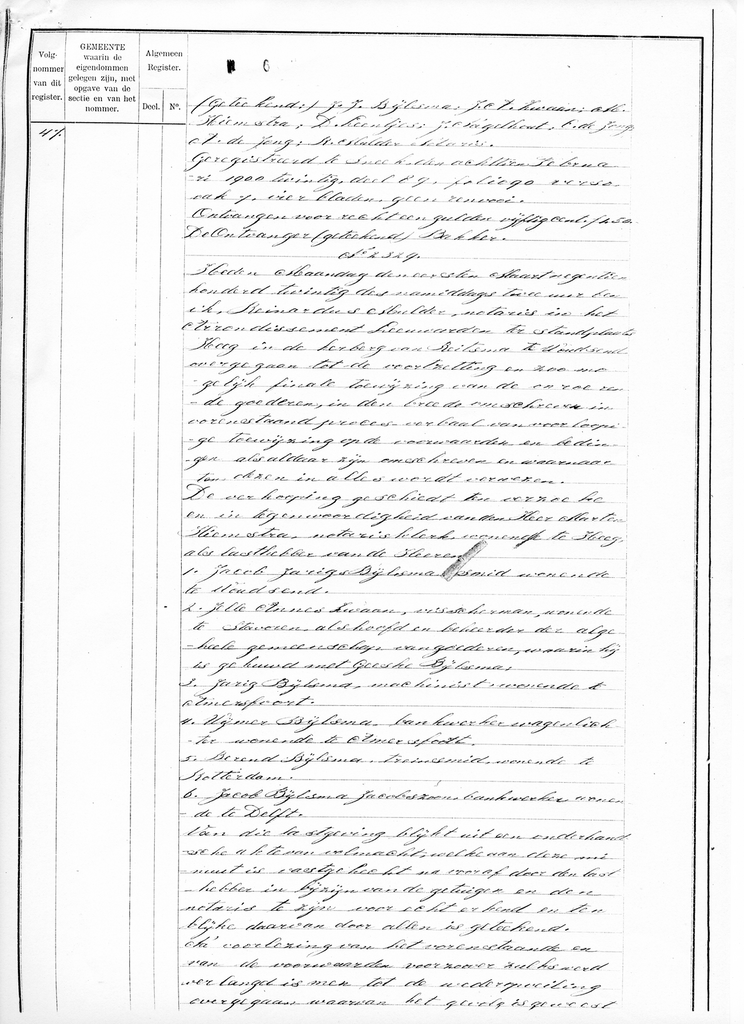 Volg-
nommer
van dit
register.
GEMEENTE
waarin de
eigendommen
gelegen zijn, met
opgave van de
sectie en van het
nommer.
Algemeen
Register.
Deel.
No.
47.
(Geteekend:) J. J. Bijlsma; J. A. Zwaan; M.
Hiemstra; D. Keentjes; J. Nagelhout; E. de Jong
A. de Jong; R. Mulder notaris.
Geregistreerd te Sneek den achttien Februa
ri 1900 twintig, deel 89, folio 90 verso
vak 7, vier bladen, geen renvooi.
Ontvangen voor recht een gulden vijftig cent. f 1.50
De Ontvanger (geteekend) Bakker.
No 2329.
Heden Maandag den eersten Maart negentien
honderd twintig des namiddags twee uur ben
ik, Reinardus Mulder, notaris in het
Arrondissement Leeuwarden ter standplaats
Heeg in de herberg van Reitsma te Woudsend
overgegaan tot de voortzetting en zoo mo
gelijk finale toewijzing van de onroeren
-de goederen, in den breede omschreven in
vorenstaand proces-verbaal van voorloopi
-ge toewijzing op de voorwaarden en bedin-
gen als aldaar zijn omschreven en waarnaar
ten dezen in alles wordt verwezen.
De verkooping geschiedt ten verzoeke
en in tegenwoordigheid van den Heer Marten
Hiemstra, notarisklerk, wonende te Heeg,
als lasthebber van de Heeren
1. Jacob Jarigs Bijlsma smid wonende
te Woudsend.
2. Jelle Annes Zwaan, visscherman, wonende
te Stavoren, als hoofd en beheerder der alge-
-heele gemeenschap van goederen, waarin hij
is gehuwd met Geeske Bijlsma;
3. Jarig Bijlsma, machinist wonende te
Amersfoort.
4. Wijmer Bijlsma, bankwerker wagenlich-
-ter wonende te Amersfoort.
5. Berend Bijlsma, treinsmid, wonende te
Rotterdam.
6. Jacob Bijlsma Jacobszoon, bankwerker wonen
de te Delft.
Van die lastgeving blijkt uit een onderhand
-sche akte van volmacht, welke aan deze mi
nuut is vastgehecht na vooraf door den last
-hebber in bijzijn van de getuigen en den
notaris te zijn voor echt erkend en ten
blijke daarvan door allen is geteekend.
Na voorlezing van het vorenstaande en
van de voorwaarden voorzoover zulks werd
verlangd is men tot de wederopveiling
overgegaan waarvan het gevolg is geweest